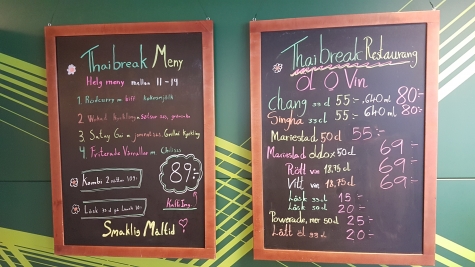 Thaibreak Meny
Helg meny mellan 11-14
1 Rödcurry m biff kokosmjölk
2 Wokad kyckling
3 Satay Gai m jordnötsås Grillad kyckling
4 Friterade Vårrullar m Chilisås
Kombi 2 rätter 109:-
89:-
Läsk 33 cl på lunch 10:-
Smaklig Måltid
Thaibreak Restaurang
ÖL O Vin
Chang 33 cl 55:- 640 ml 80:-
Singha 33 cl 55:- 640 ml 80:-
Mariestad 50 cl 55:-
Mariestad 50 cl 69:-
Rött vin 18,75 cl 69:-
Vitt vin 18,75 cl 69:-
Läsk 33 cl 15:-
Läsk 50 cl 20:-
Powerade, mer 50 cl 25:-
Lätt öl 33 cl 20:-